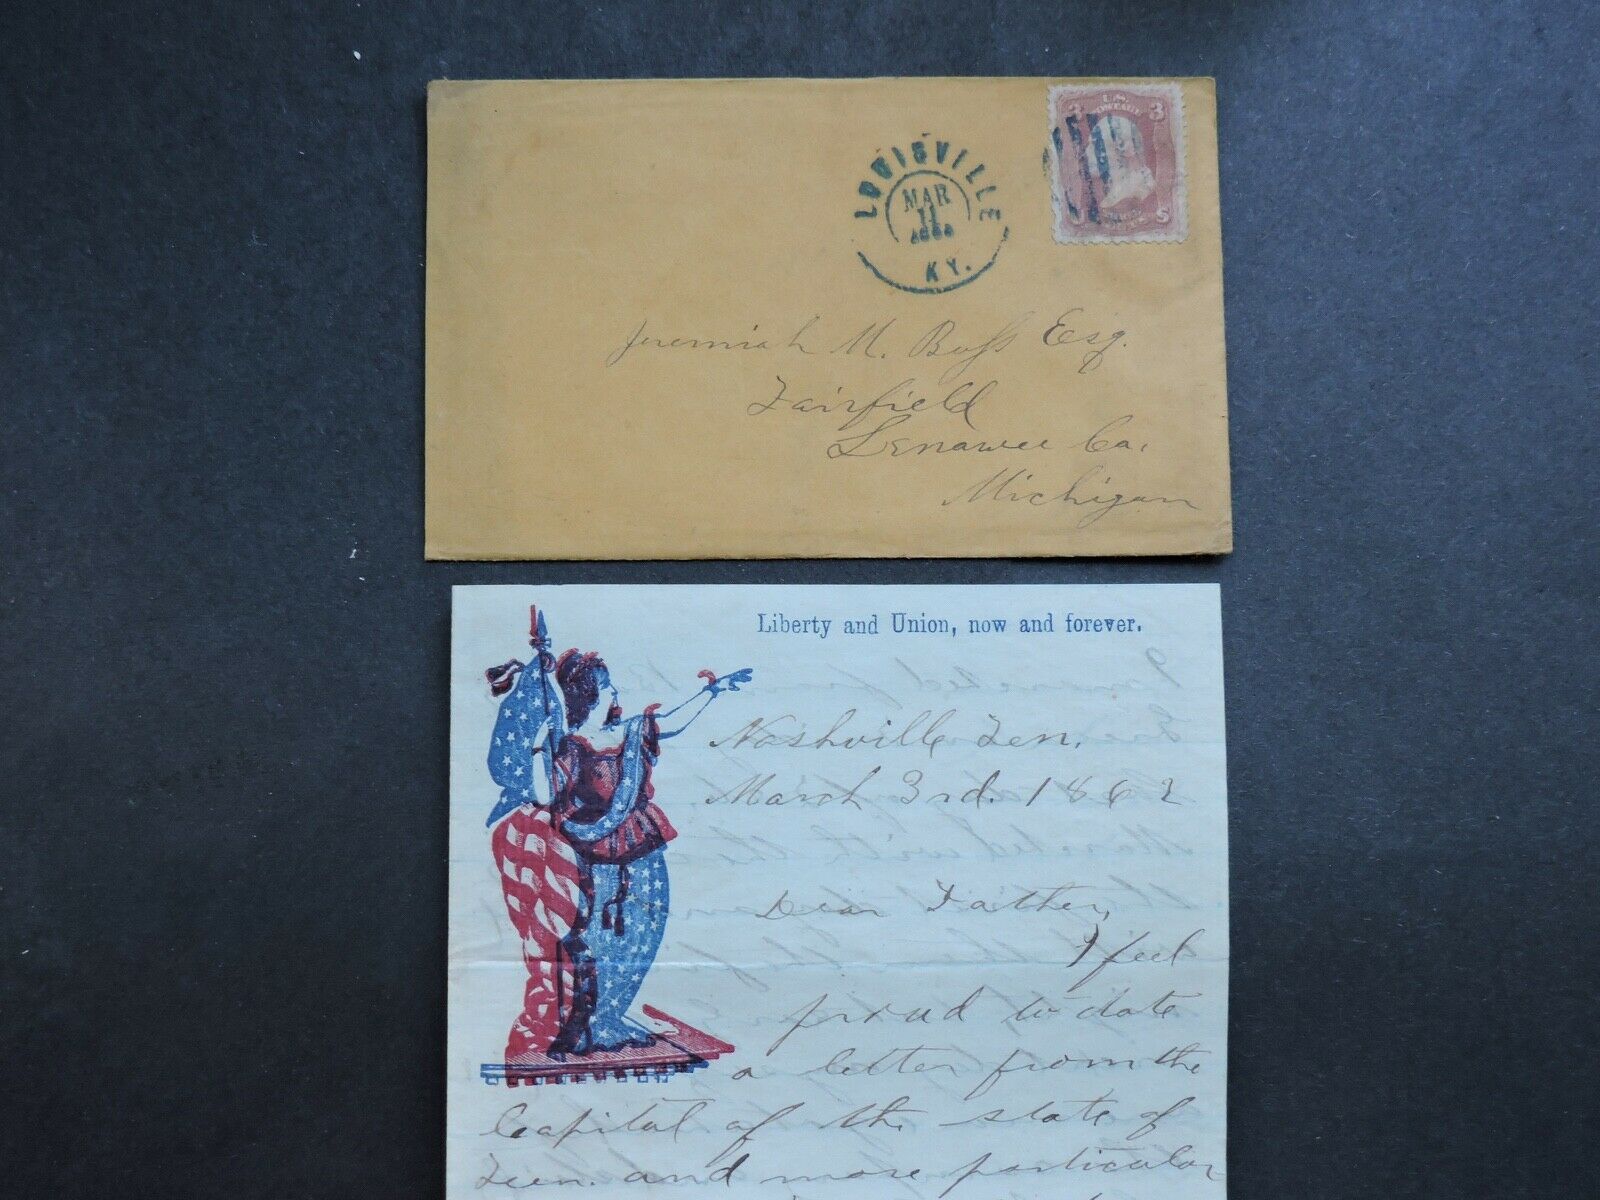 LOUISVILLE
MAR
11
KY.
3 U.S. 3
POSTAGE
Jeremiah M. Buss Esq.
Fairfield
Lenawee Co.
Michigan
Liberty and Union, now and forever.
Nashville Ten.
March 3rd. 1862
Dear Father,
I feel
proud to date
a letter from the
Capital of the state of
Teen. and more particular